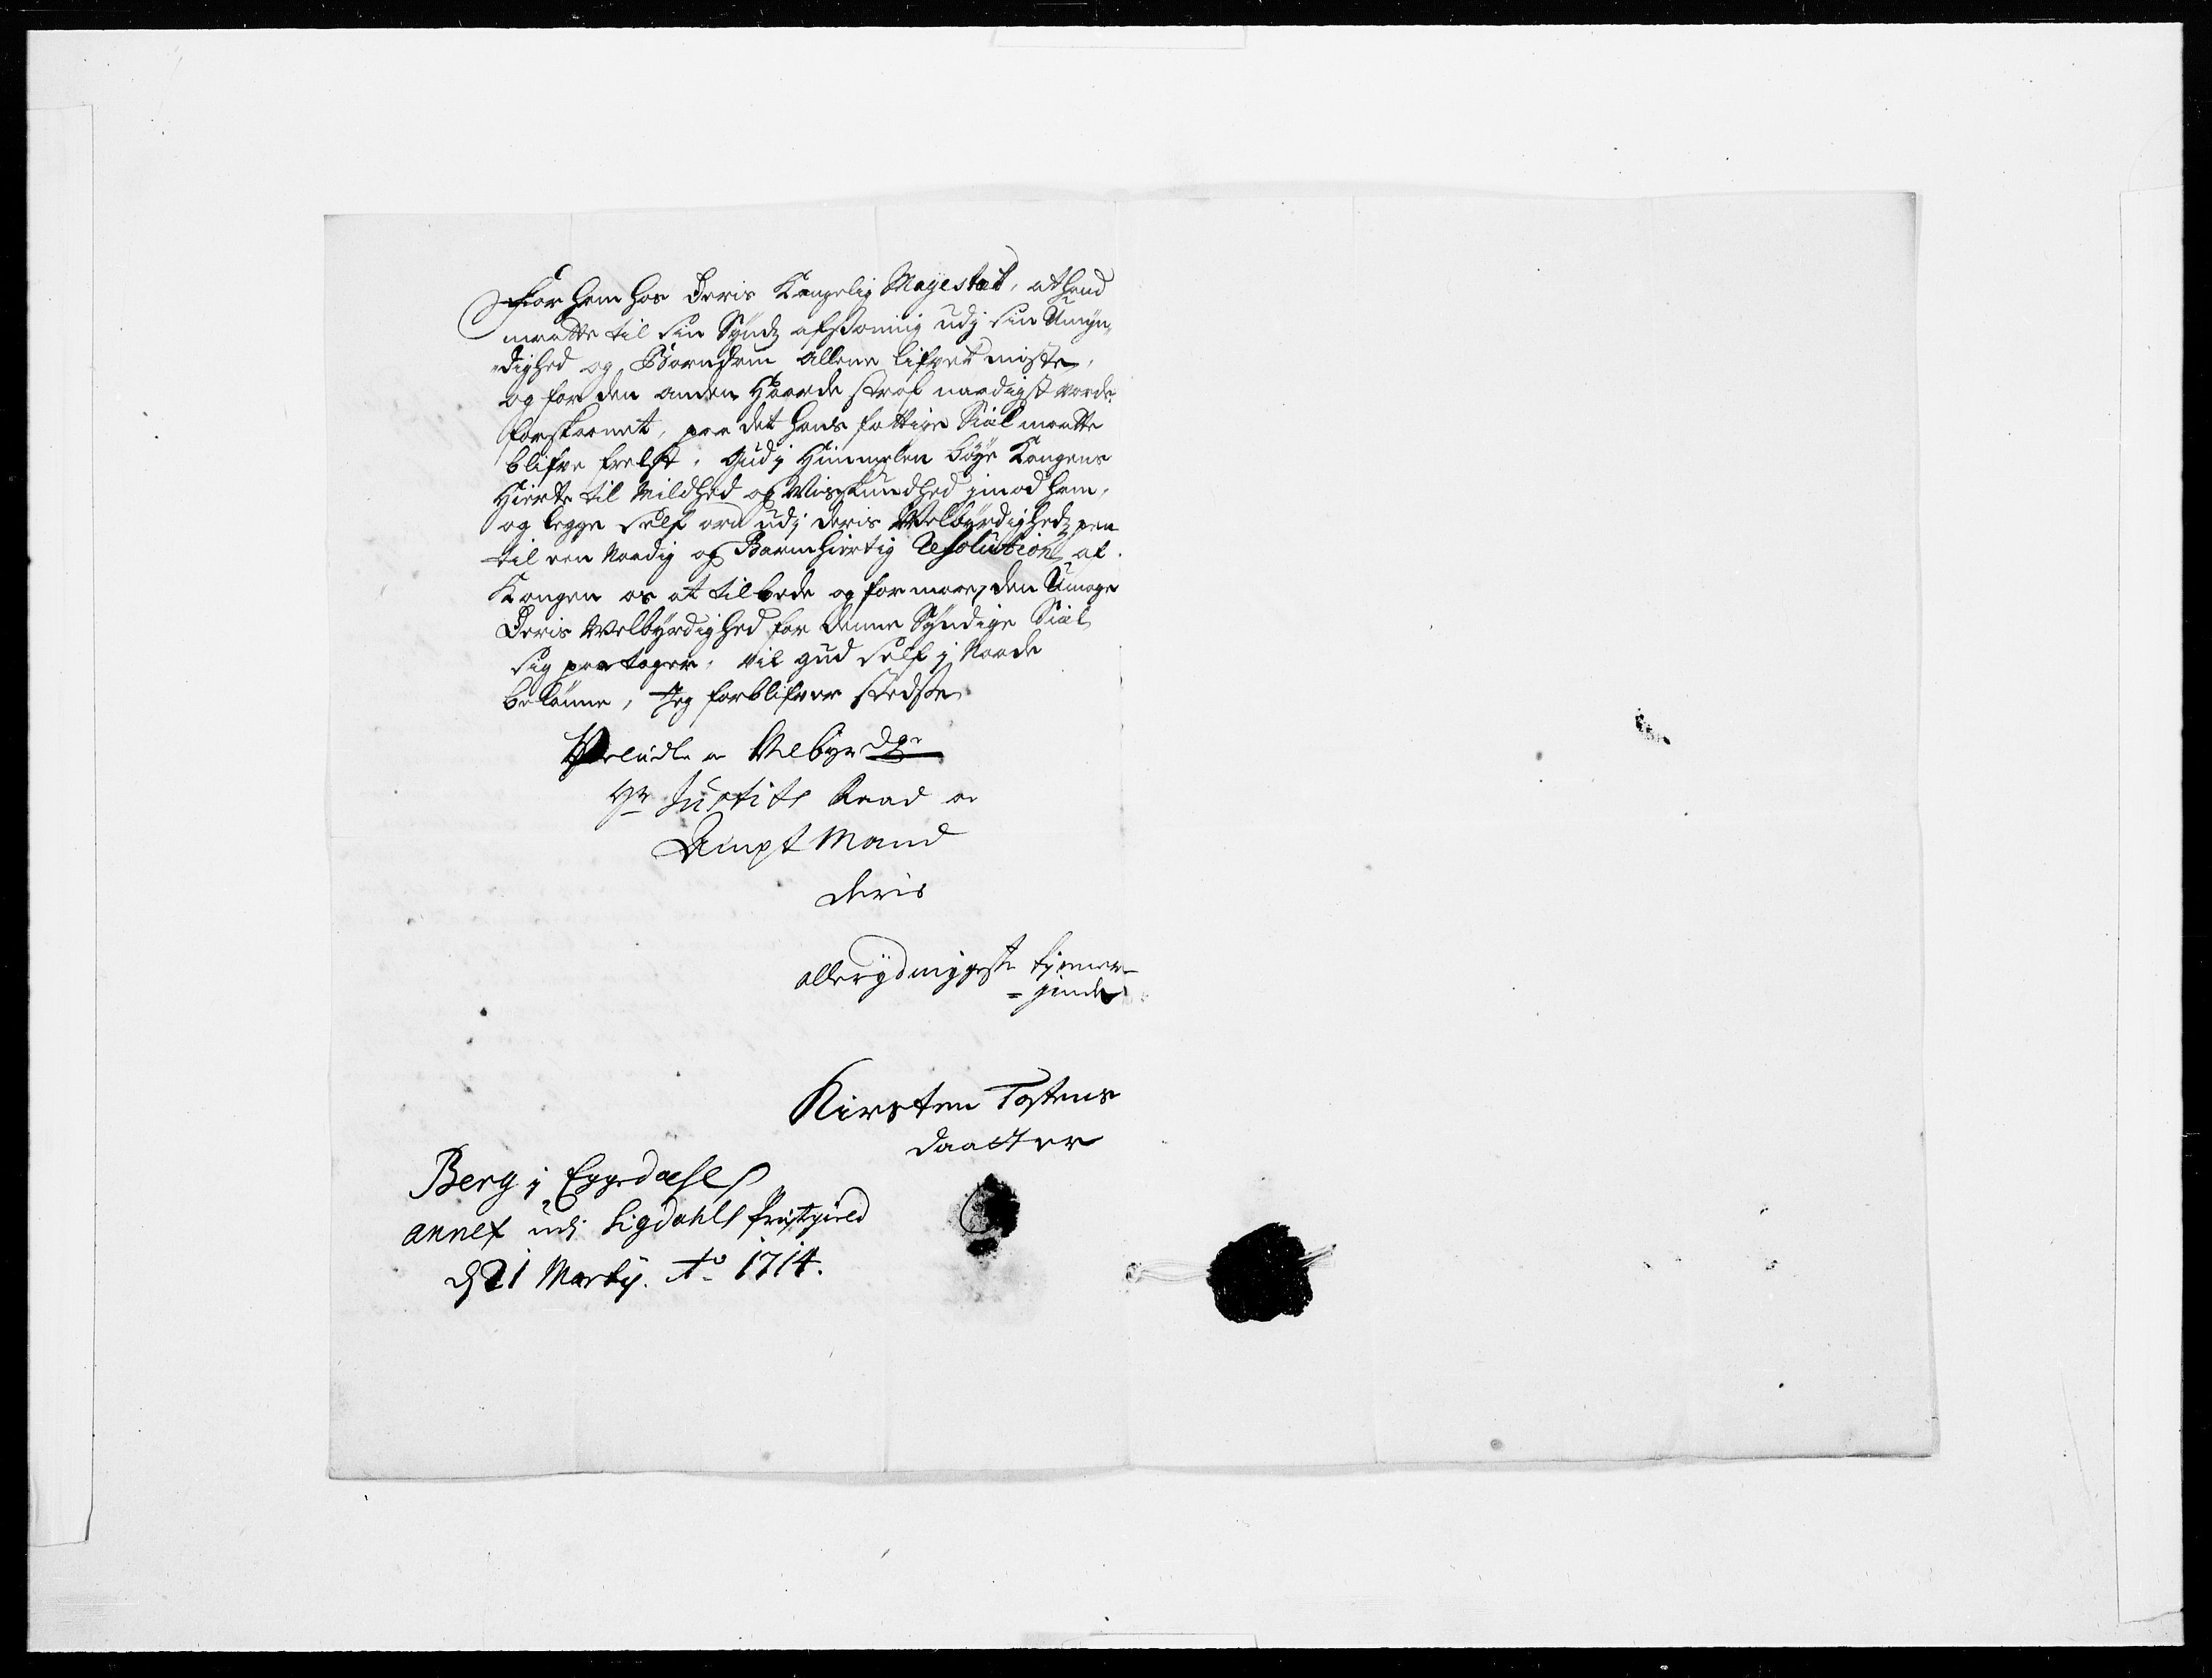 For ham hos Deris Kongelig Mayestæt, at hand
maatte til sin Synds afsoning udj sin Umÿn¬
¬dighed og Barndom allene lifvet miste,
og for den anden Haarde straf naadigst vorde
forskaanet, paa det hans fattige Siæl maatte
blifve frelst, Gud j Himmelen bøÿe Kongens
Hierte til Mildhed og Miskundhed jmod ham,
og legge self ord udj deris Welbÿrdigheds pen
til een Naadig og Barmhiertig Resolution af
Kongen os at tilbede og formaae, den Umage
Deris Welbÿrdighed for denne Sÿndige Siæl
sig paatager, vil gud self j Naade
belønne, Jeg forblifver stedse
Welædle og Velbyrdge
Hr Justits Raad og
Ampt Mand
deris
allerÿdmygeste tjener¬
=jnde
Kirsten Tostens
daatter
Berg j Eggedahls
annex udj Sigdahls Præstegield
d 21 Martÿ. Ao 1714.